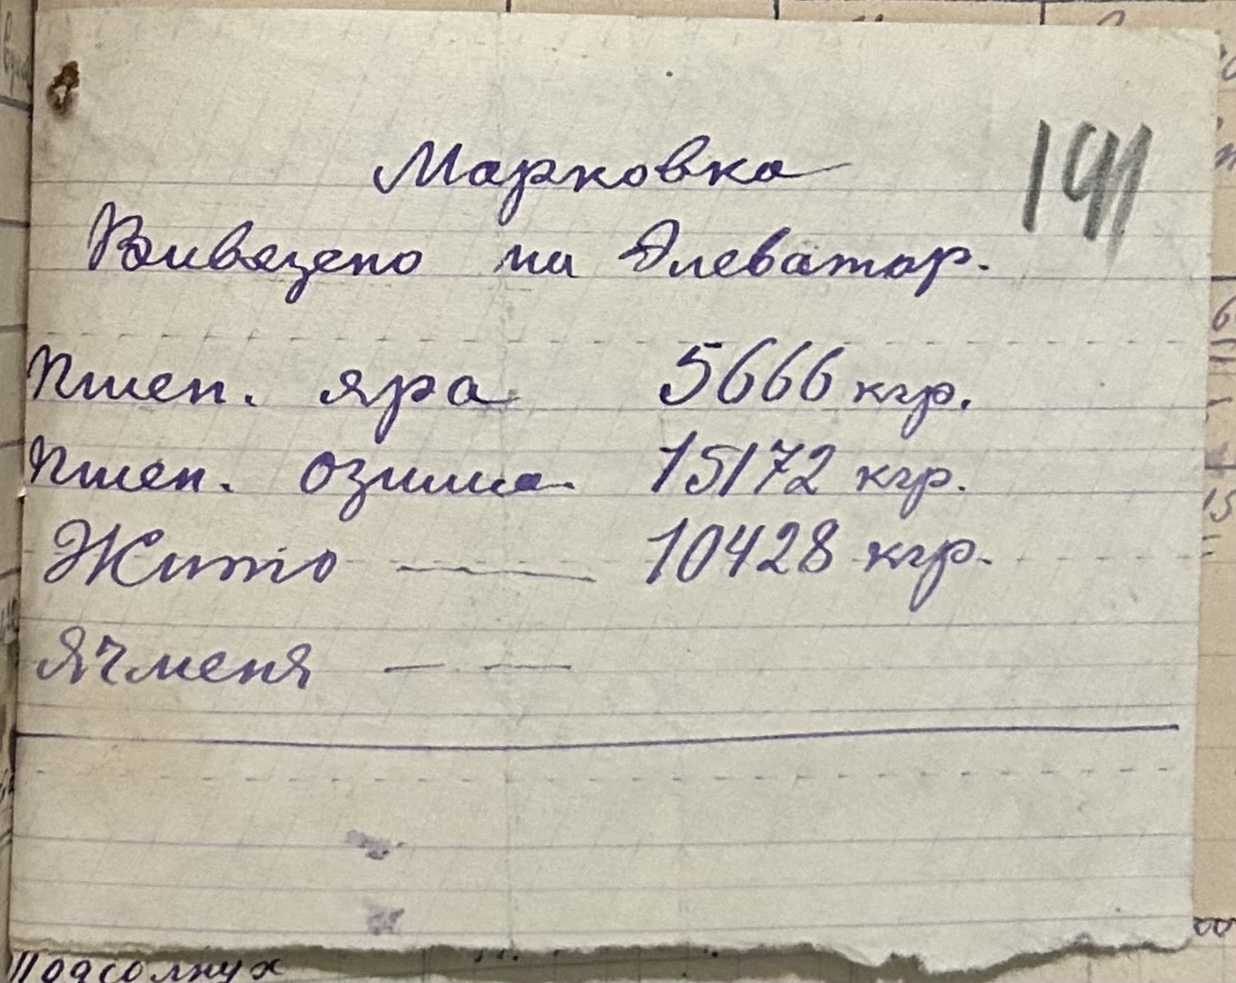 Марковка
191
Вивезено на Элеватор.
Пшен. яра 5666 кгр.
Пшен. озима 15172 кгр.
Жито — 10428 кгр.
Ячменя — —
Подсолнух